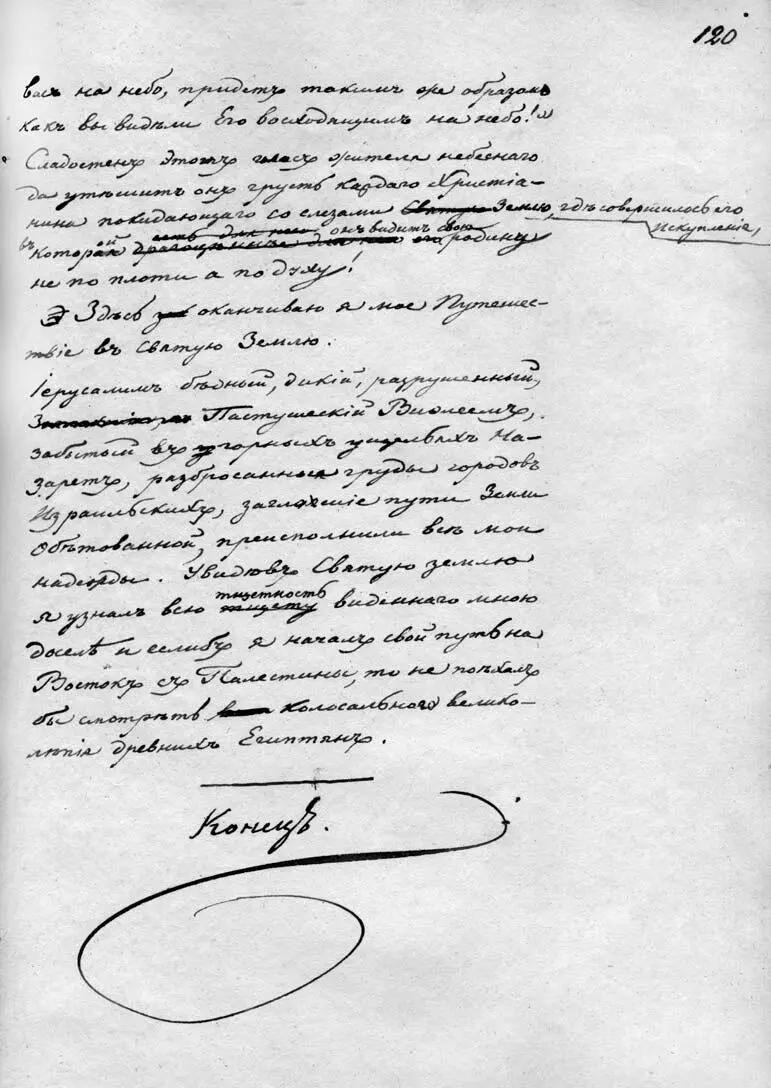 120
васъ на небо, придетъ такимъ же образомъ
какъ вы видѣли Его восходящимъ на небо!»
Сладостенъ этотъ гласъ жителя небеснаго
да утѣшитъ онъ грусть каждаго Христіа-
нина покидающаго со слезами Святую Землю, гдѣ совершилось его
искупленіе,
есть для него, онъ видитъ свою
въ которой драгоцѣннѣе для него его родину
не по плоти а по духу!
Здѣсь оканчиваю я мое Путеше-
ствіе въ Святую Землю.
Іерусалимъ бѣдный, дикій, разрушенный,
Пастушескій Виѳлеемъ,
забытый въ горныхъ ущельяхъ На-
заретъ, разбросанныя груды городовъ
Израильскихъ, заглохшіе пути Земли
Обѣтованной, преисполнили всѣ мои
надежды. Увидѣвъ Святую землю
тщетность
я узналъ всю тщету виденнаго мною
доселѣ и еслибъ я началъ свой путь на
Востокъ съ Палестины, то не поѣхалъ
бы смотрѣть колосальнаго велико-
лѣпія древнихъ Египтянъ.
Конецъ.